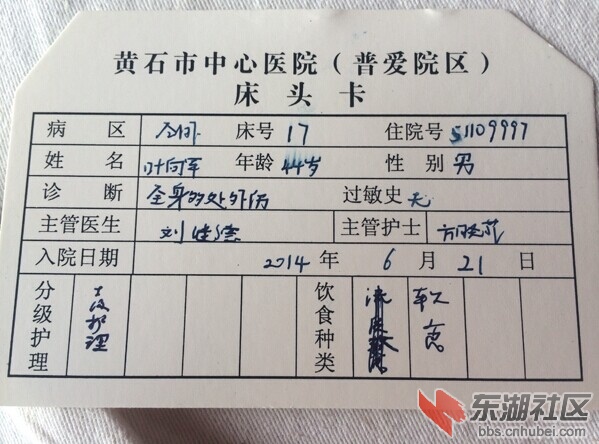 黄石市中心医院（普爱院区）
床头卡
病区 床号 17 住院号 51109997
姓名 叶向军 年龄 44岁 性别 男
诊断 全身多处外伤 过敏史 无
主管医生 刘 主管护士
入院日期 2014 年 6 月 21 日
分级护理 护理 饮食种类 软食
东湖社区
bbs.cnhubei.com